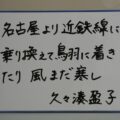 名古屋より近鉄線に
乗り換えて鳥羽に着き
たり 風まだ寒し
久々湊盈子